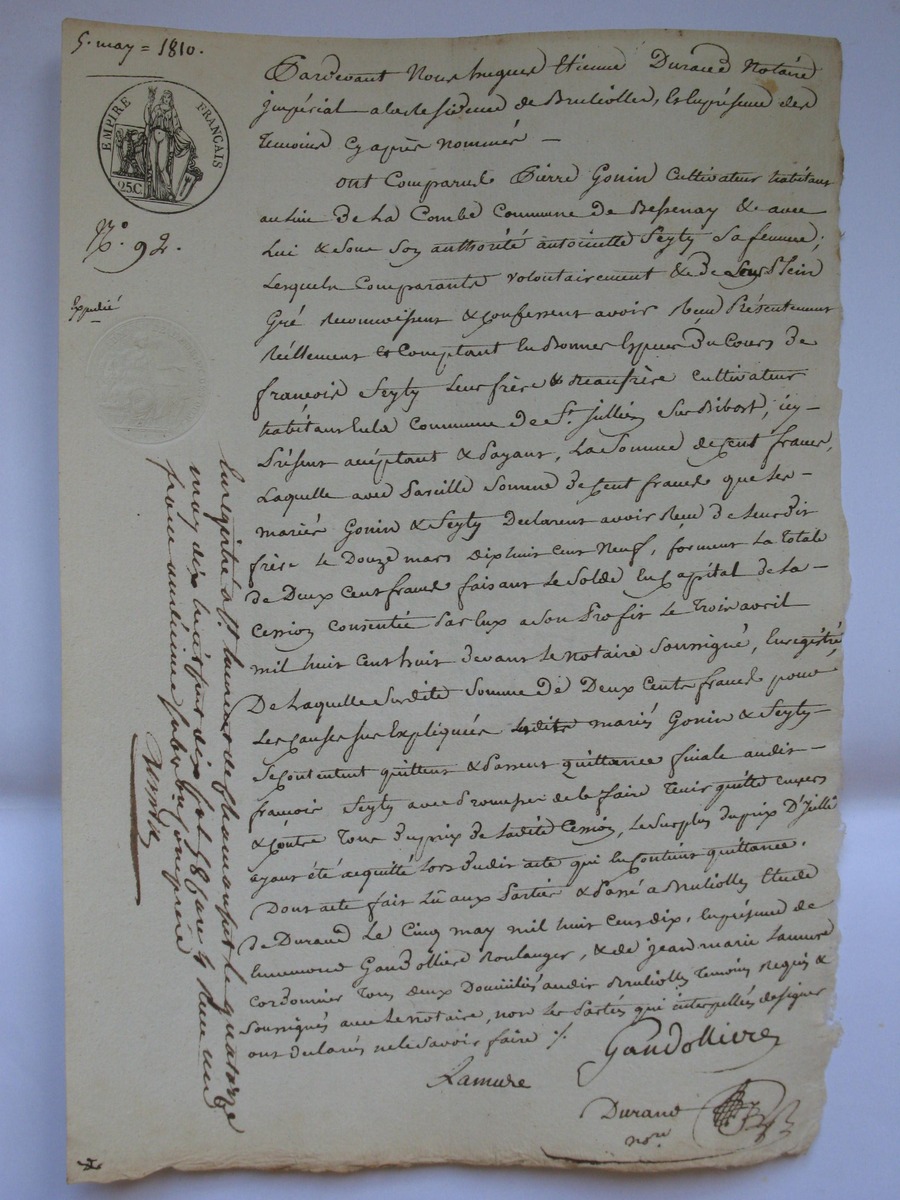 5. may = 1810.
EMPIRE FRANÇAIS
25C.
N.º 92.
Expedié
Pardevant Nous hugues Etienne Durand Notaire
jmpérial alaresidence de Brullolles, & Enpresence des
Temoins Cy après nommés —
ont Comparus Pierre Gonin Cultivateur habitant
au Lieu de La Combe Commune de Bessenay & avec
Lui & sous son authorité antoinette Seyty Safemme;
Lesquels Comparants volontairement & de Leur plein
Gré Reconnoissent & Confessent avoir Recu Présentement
Réellement & Comptant En Bonnes Especes du Cours de
françois Seyty Leur frère & Beaufrère Cultivateur
habitant En la Commune de St. jullien Sur Bibost, icy —
Présent acceptant & Payant, La Somme de Cent francs,
Laquelle avec Pareille Somme de Cent francs que les —
mariés Gonin & Seyty Declarent avoir Recu de leurdit
frère le Douze mars dixhuit cent Neuf, forment La Totale
de Deux Cent francs faisant Le Solde En Capital de La —
Cession Consentie Par Eux a Son Profit Le Trois avril
mil huit Cent huit devant Le Notaire Soussigné, Enregistré,
De Laquelle Surdite Somme de Deux Cents francs pour
Les Causes sus Expliquées Lesdits mariés Gonin & Seyty —
Se Contentent quittent & Passent quittance finale audit —
françois Seyty avec Promesse de le faire Tenir quitte envers
& Contre Tous du prix de Ladite Cession, Le Surplus du prix D'Jcelle
ayant été acquitté Lors dudit acte qui En Contient quittance.
Dont acte fait Lû aux Parties & Passé a Brullolles Etude
de Durand Le Cinq may mil huit Cent dix, En présence de
Ennemond Gaudolliere Boulanger, & de jean marie Lamure
Cordonnier Tous deux Domiciliés audit Brullolles Temoins Requis &
Soussignés avec Le Notaire, non Les Parties qui interpellés de signer
ont declarés ne le Savoir faire ./.
Gaudolliere
Lamure
Durand
Nore
Enregistré a St. Laurent de Chamousset le quatorze
may dix huit cent dix fol. 58 Recu un
franc